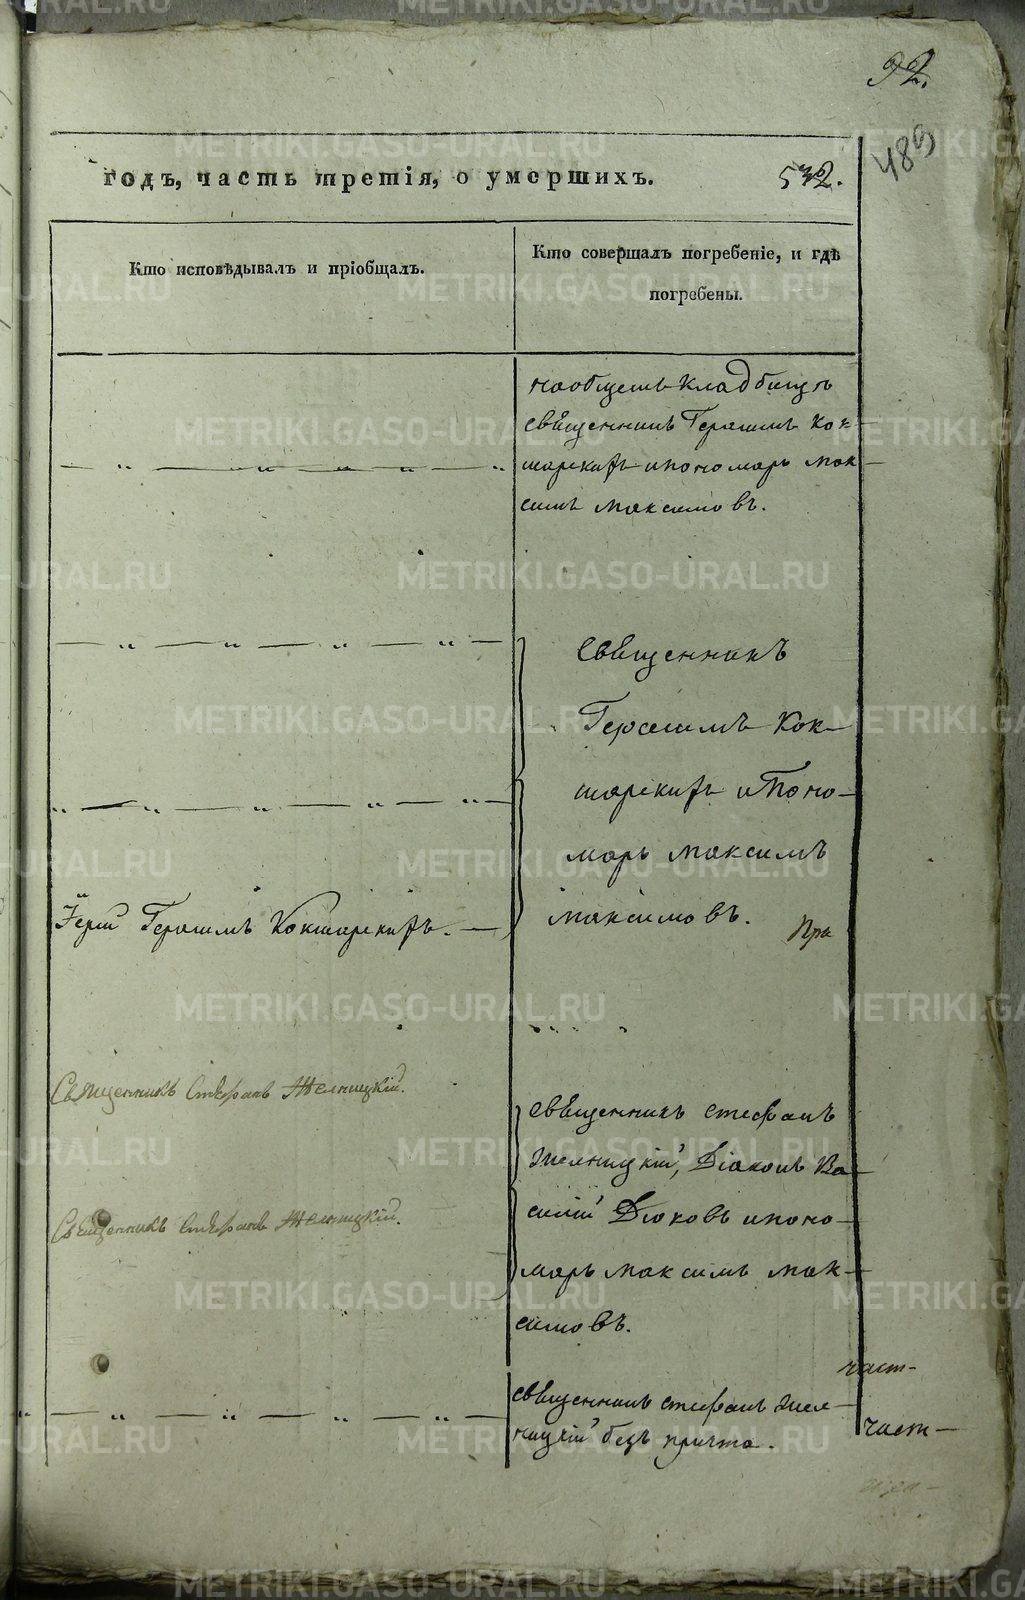 92.
489
годъ, часть третія, о умершихъ. 532.
Кто исповѣдывалъ и пріобщалъ.
Кто совершалъ погребеніе, и гдѣ
погребены.
на общемъ кладбищѣ
священникъ Герасимъ Кок-
шарскихъ и пономарь Мак-
симъ Максимовъ.
Священникъ
Герасимъ Кок-
шарскихъ и Поно-
марь Максимъ
Максимовъ.
При
Іерей Герасимъ Кокшарскихъ.
Священникъ Стефанъ Желницкій.
Священникъ Стефанъ
Желницкій, Діаконъ Ва-
силій Дюковъ и поно-
марь Максимъ Мак-
симовъ.
Священникъ Стефанъ Желницкій.
Священникъ Стефанъ Жел-
ницкій безъ причта.
част-
част-
METRIKI.GASO-URAL.RU